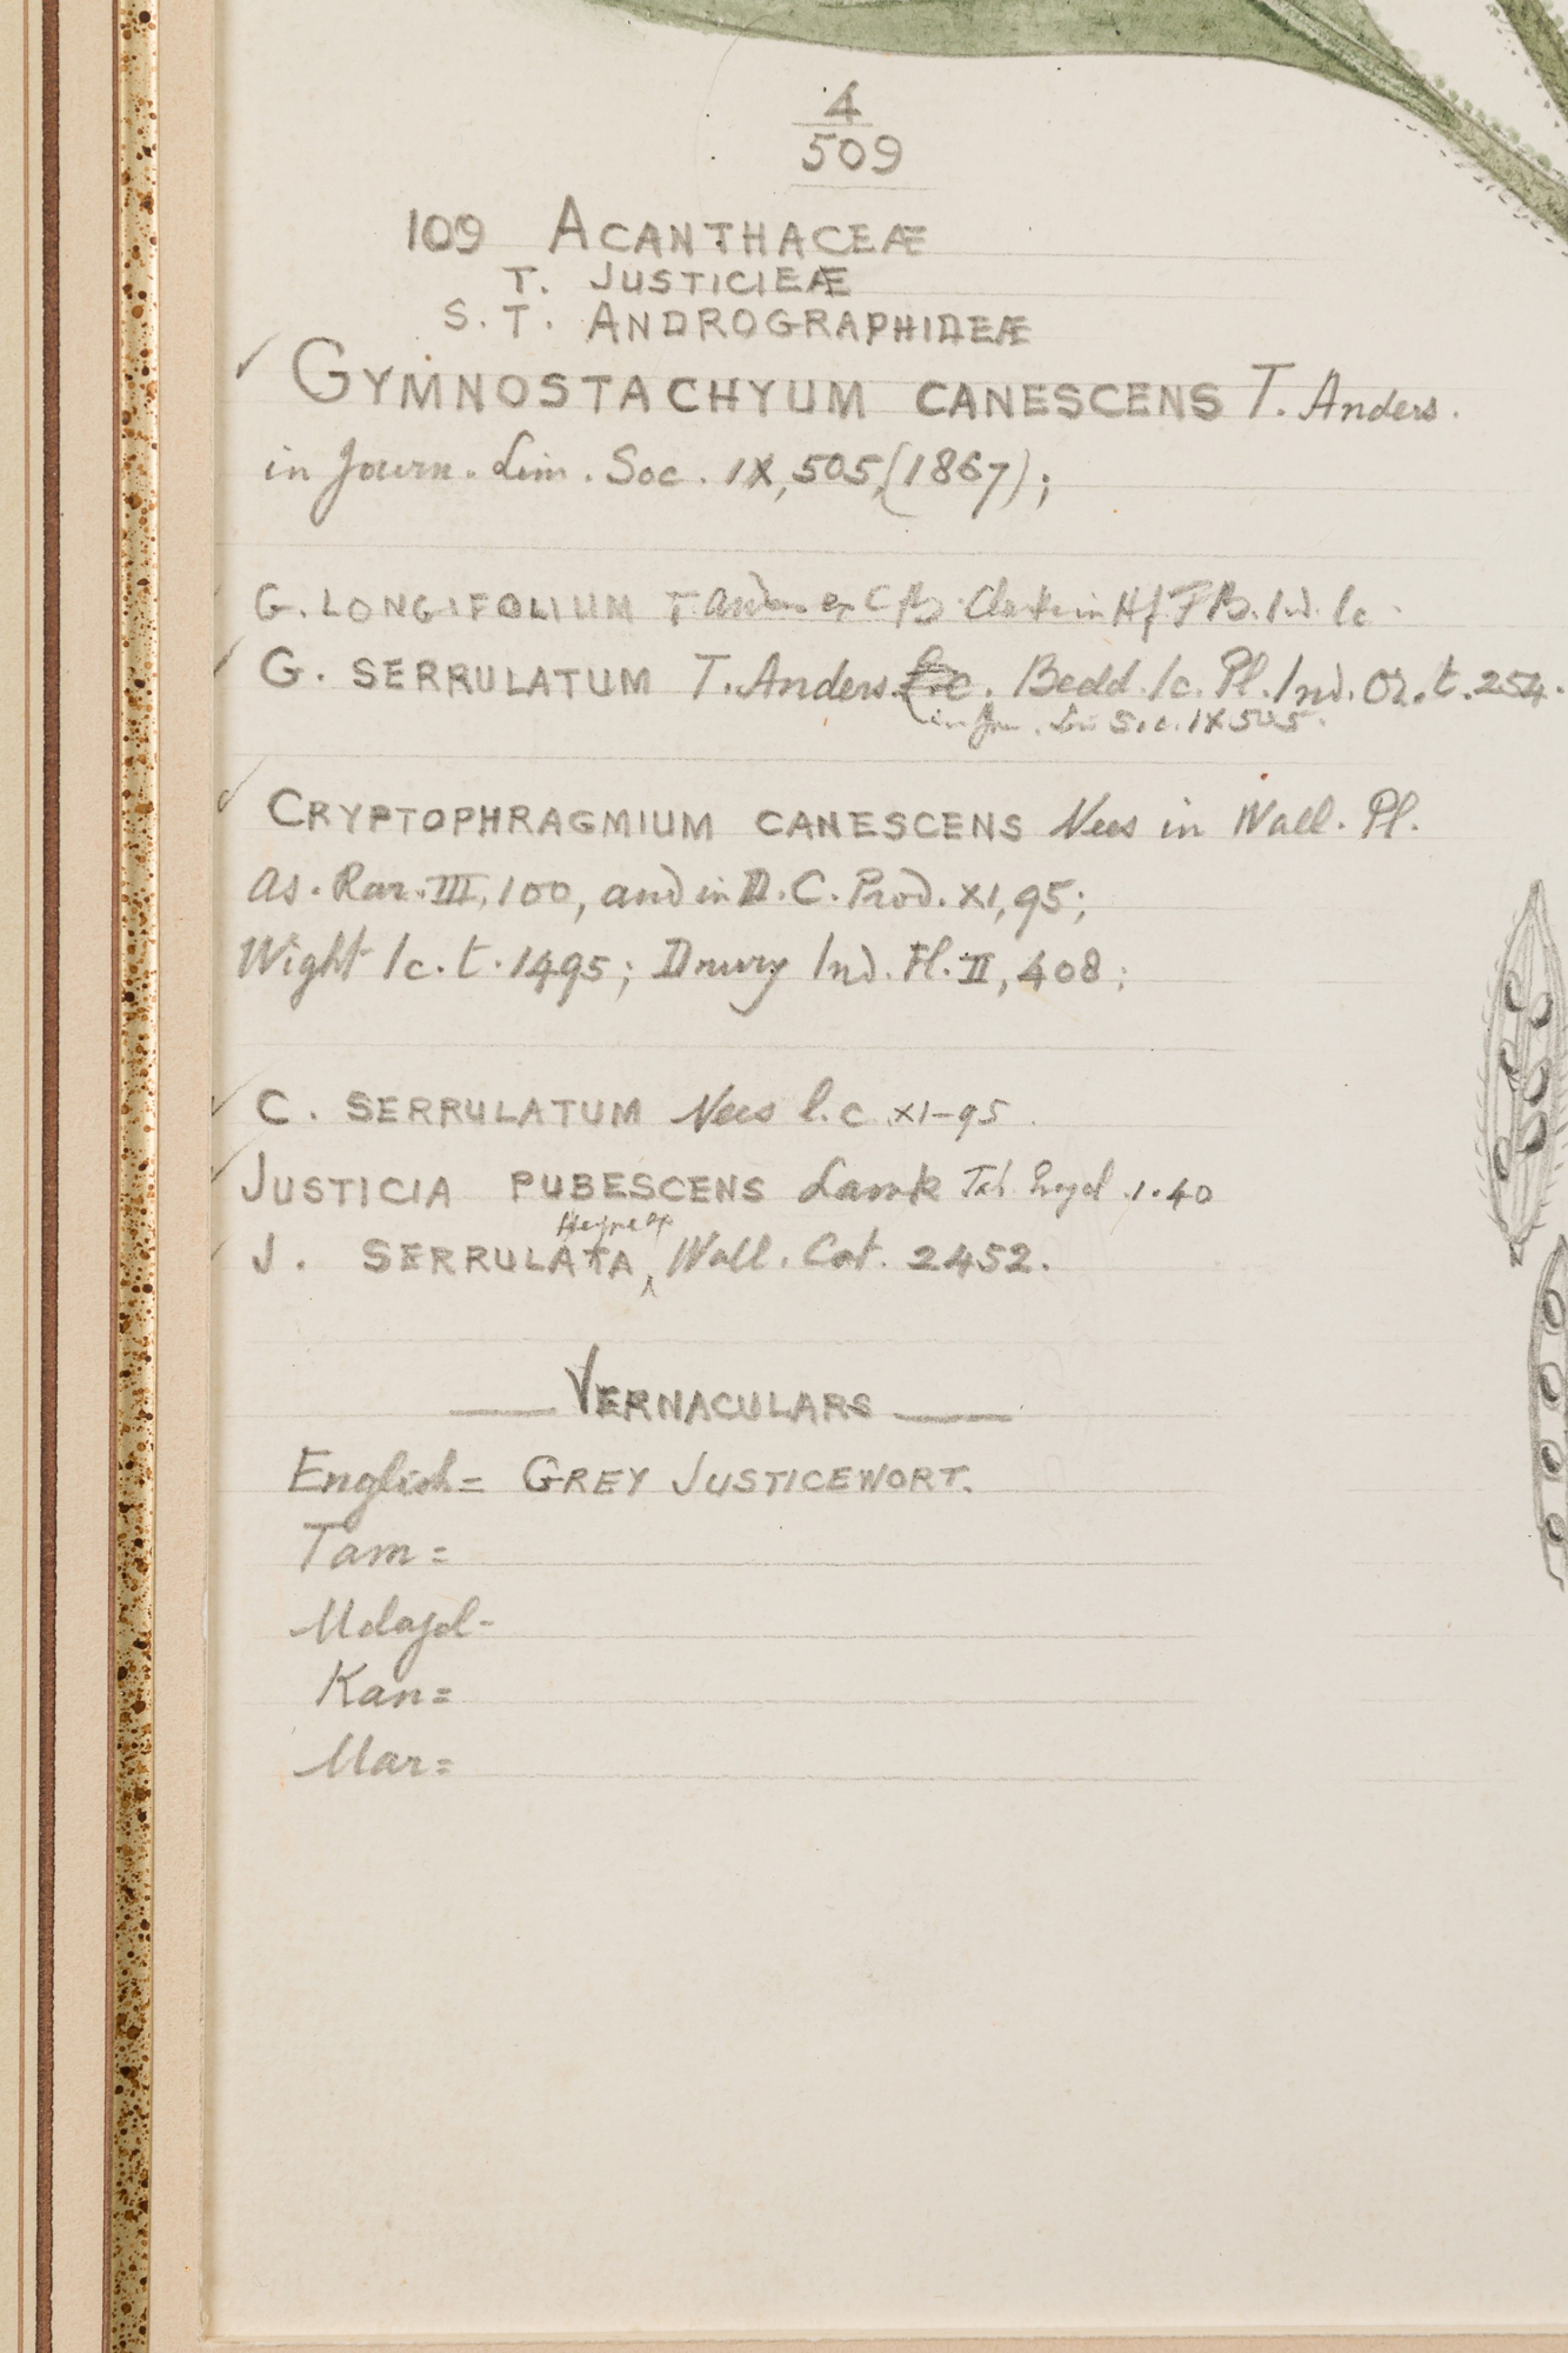 4
509
109 ACANTHACEÆ
T. JUSTICIEÆ
S. T. ANDROGRAPHIDEÆ
GYMNOSTACHYUM CANESCENS T. Anders.
in Journ. Linn. Soc. IX, 505, (1867);
G. LONGIFOLIUM T Anders ex C B. Clarke in Hf F B. Ind. lc.
G. SERRULATUM T. Anders. l.c. Bedd. Ic. Pl. Ind. Or. t. 254.
in Jour. Lin Soc. IX 505.
CRYPTOPHRAGMIUM CANESCENS Nees in Wall. Pl.
As. Rar. III, 100, and in D. C. Prod. XI, 95;
Wight Ic. t. 1495; Drury Ind. Fl. II, 408;
C. SERRULATUM Nees l.c. XI-95.
JUSTICIA PUBESCENS Lamk 1.40
Heyne
J. SERRULATA, Wall. Cat. 2452.
VERNACULARS
English = GREY JUSTICEWORT.
Tam =
Malayal-
Kan =
Mar =